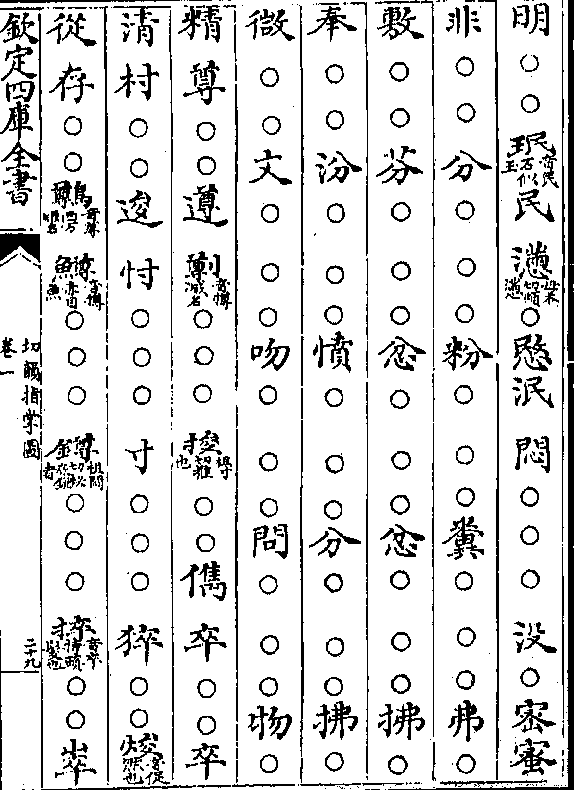 明○○珉民○愍泯悶○○○没○密蜜
非○○分○○○粉○○○糞○○○弗○
敷○○芬○○○忿○○○忿○○○拂○
奉○○汾○○○憤○○○分○○○拂○
微○○文○○○吻○○○問○○○物○
精尊○○遵○○○寸○○儁卒○○卒
清村○○逡忖○○○寸○○○猝○○焌
從存○○鱒○○○○○○○○崒
欽定四庫全書
切韻指掌圖
卷一
二十九